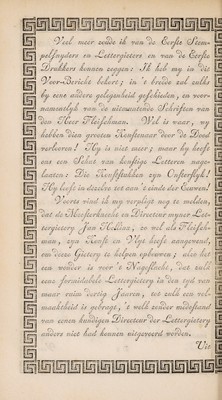 Veel meer zoude ik van de Eerste Stem-
pelsnyders en Lettergieters en van de Eerste
Drukkers kunnen zeggen: Ik heb my in dit
Voor-Bericht bekort; in 't breede zal zulks
by eene andere gelegenheid geschieden, en voor-
namentlyk van de uitmuntende Schriften van
den Heer Fleischman. Wel is waar, wy
hebben dien grooten Konstenaar door de Dood
verlooren! Hy is niet meer; maar hy heeft
ons een Schat van konstige Letteren nage-
laaten: Die Konststukken zyn Onsterflyk!
Hy leeft in dezelve tot aan 't einde der Eeuwen!
Voorts vind ik my verpligt nog te melden,
dat de Meesterknecht en Directeur myner Let-
tergietery Jan zo wel als Fleisch-
man, zyn Konst en Vlyt heeft aangewend,
om deeze Gietery te helpen opbouwen; alzo het
een wonder is voor 't Nageslacht, dat zulk
eene formidabele Lettergietery in den tyd van
maar ruim dertig Jaaren, tot zulk een vol-
maaktheid is gebragt, 't welk zonder medestand
van eenen kundigen Directeur der Lettergietery
anders niet had konnen uitgevoerd worden.
Uit